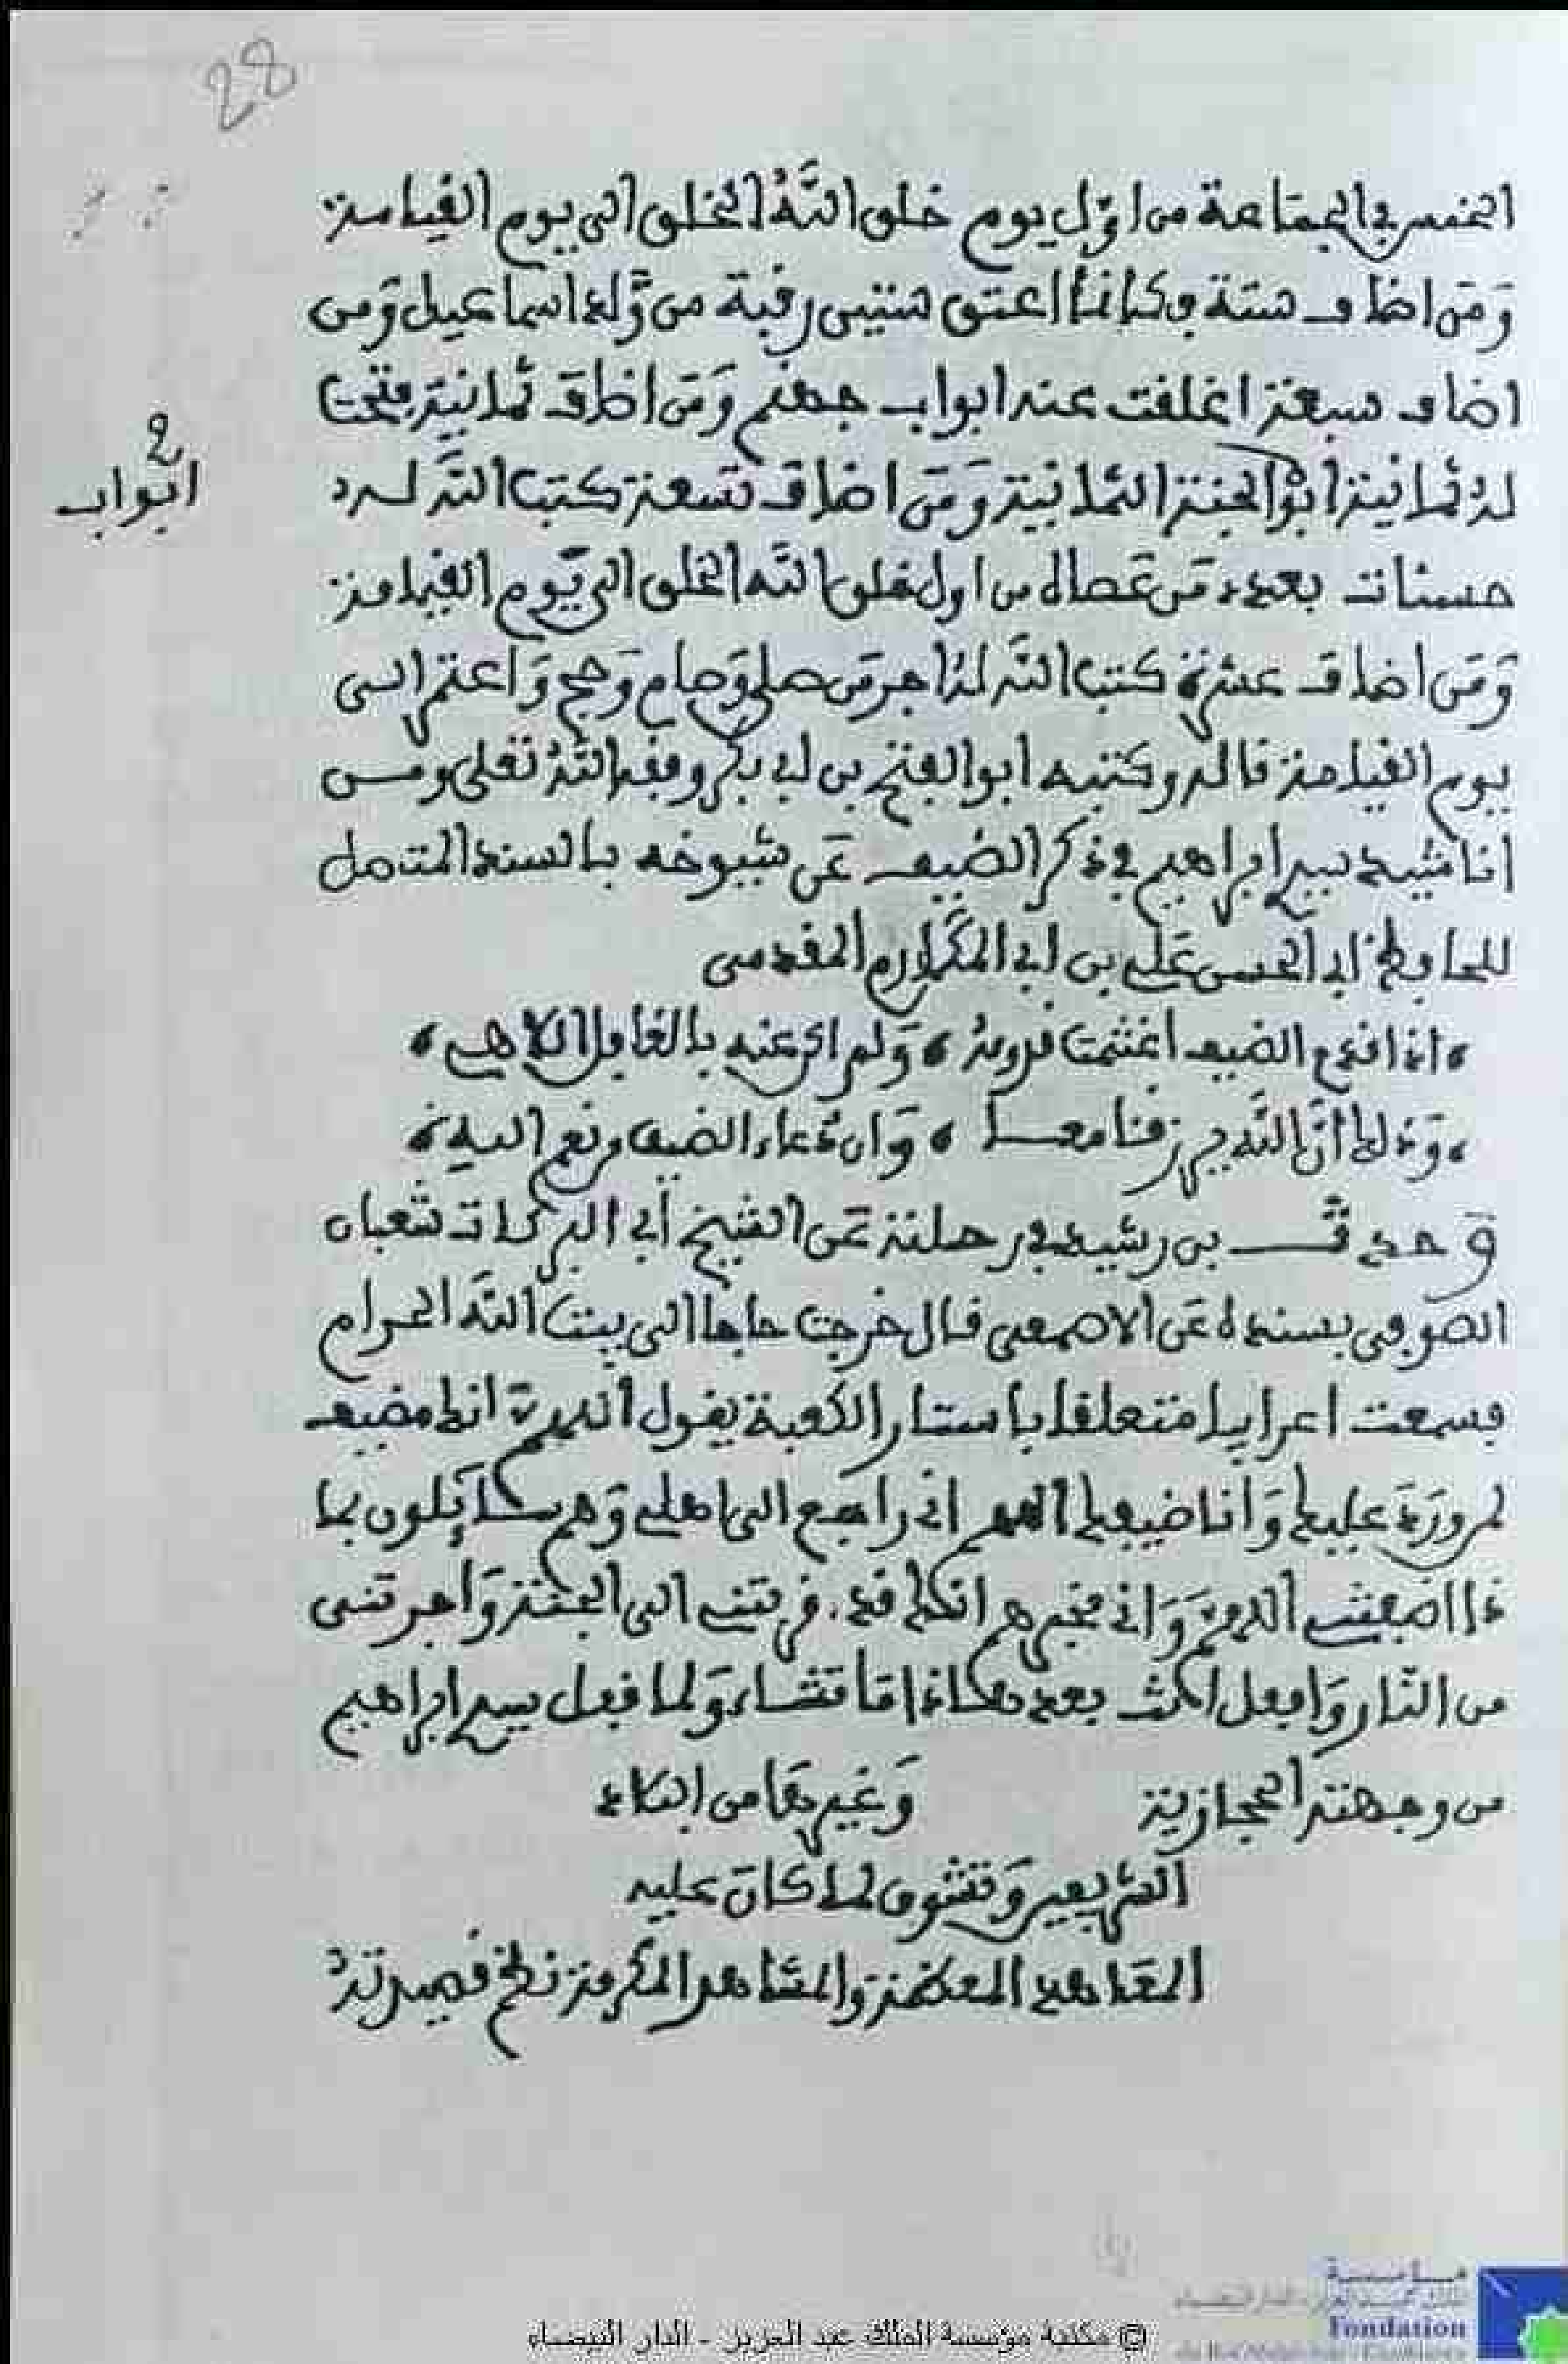 28
الخمس في الجماعة من اوّل يوم خلق اللَّهُ الخلق الى يوم القيامة
وَمَن اضاف ستة فكانما اعتق ستين رقبة من وَّلد اسماعيل وَمن
اضاف سبعة اغلقت عنه ابواب جهنم وَمَن اضاف ثمانية فتحت
لهُ ثمانية ابوا الجنة الثمانية وَمَن اضاف تسعة كتب اللَّه له
ابواب
حسنات بعدد مَن عَصاه من اول خلق اللَّه الخلق الى يَوم القيامة
وَمَن اضاف عشرة كتب اللَّه لهُ اجر مَن صلى وَصام وَحج وَاعتمر الى
يوم القيامة قاله وكتبه ابو الفتح بن ابي بكر وفقه اللَّهُ تعلى ومن
انا شيد سير ابراهيم في ذكر الضيف عَن شيوخه بالسند المتصل
للحافظ ابي الحسن عَلي بن ابي المكَارم المقدسي
اذا قدم الضيف اغتنمت قدومهُ وَلم اك عنه بالغافل اللاهي
وَذلك أنَّ اللَّه يرزقنا معا وَان دعاء الضيف يرفع اليه
وَحدث بن رشيد في رحلته عَن الشيخ أبي البركات شعبان
الصوفي بسنده عَن الاصمعي قال خرجت حاجا الى بيت اللَّه الحرام
فسمعت اعرابيا متعلقا باستار الكعبة يقول اللهم انك مضيف
لمن ورَد عليك وَانا ضيفك اللهم اني راجع الى اهلي وَهم سائلون بما
ذا اضفتني اللهم وَاني مخبرهم انك قد قربتني الى الجنة وَاجرتني
من النار وَافعل انت بعد هَذا مَا تشاء وَلما قفل سير ابراهيم
من وجهته الحجازية وَغيرهَا من البلاد
الشريفين وَتشوق لما كان عليه
المعَاهد المعظمة والمشاهد المكرمة نظم قصيدتهُ
© مكتبة مؤسسة الملك عبد العزيز - الدار البيضاء
مؤسسة
Fondation